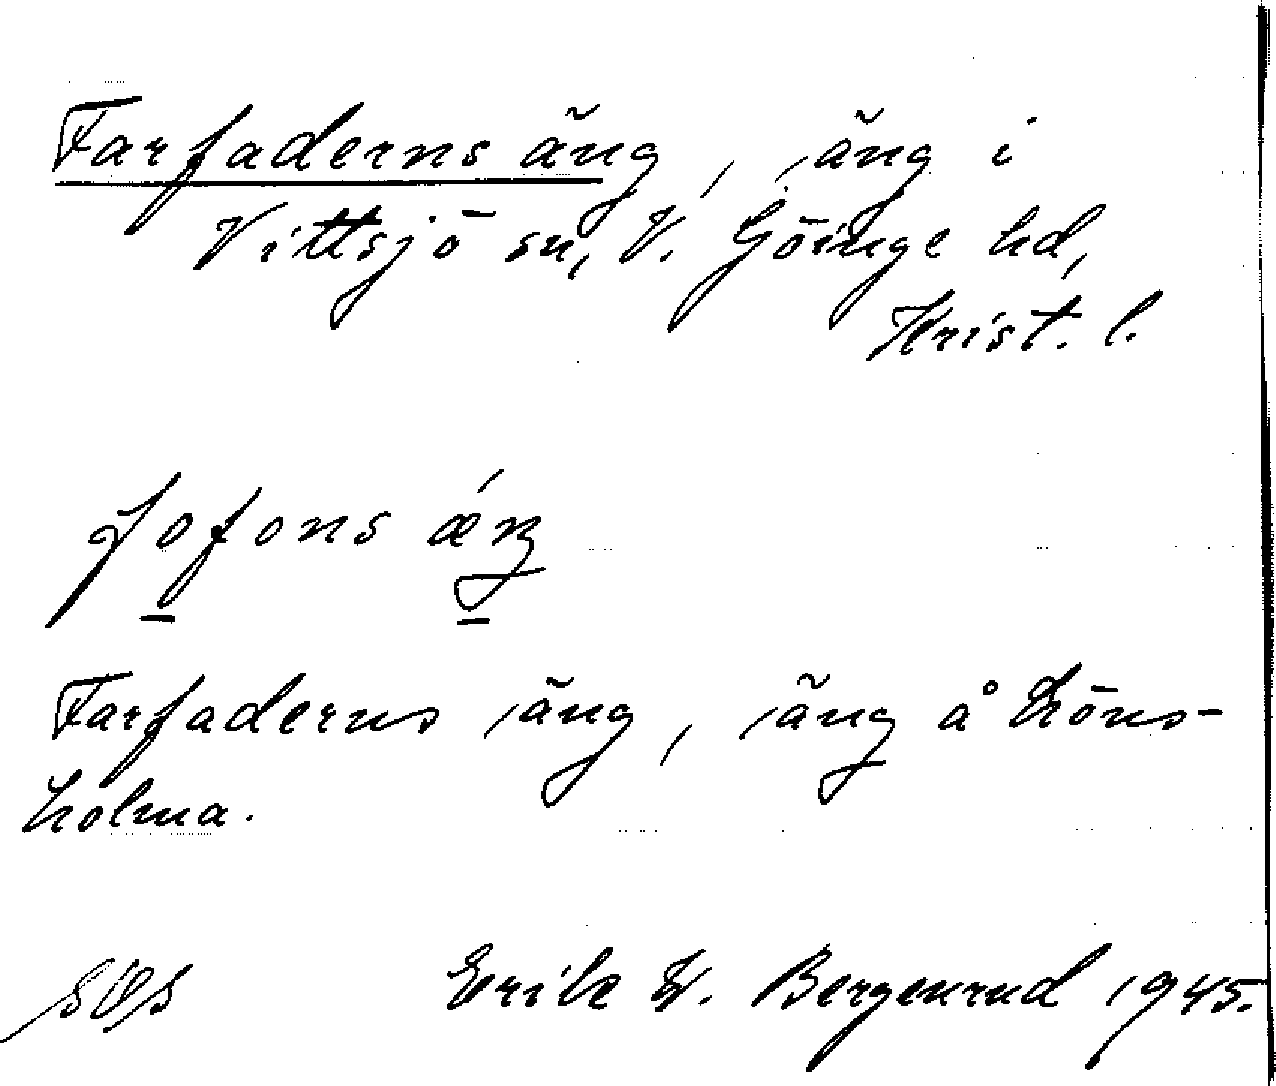 Farfaderns äng, äng i
Vittsjö sn, V. Göinge hd,
Krist. l.
fofons ǽŋ
Farfaderns äng, äng å Höns-
holma.
Erik W. Bergenrud 1945.